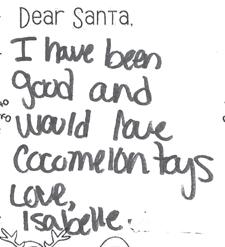 Dear Santa,
I have been
good and
would love
Cocomelon toys
Love,
Isabelle.